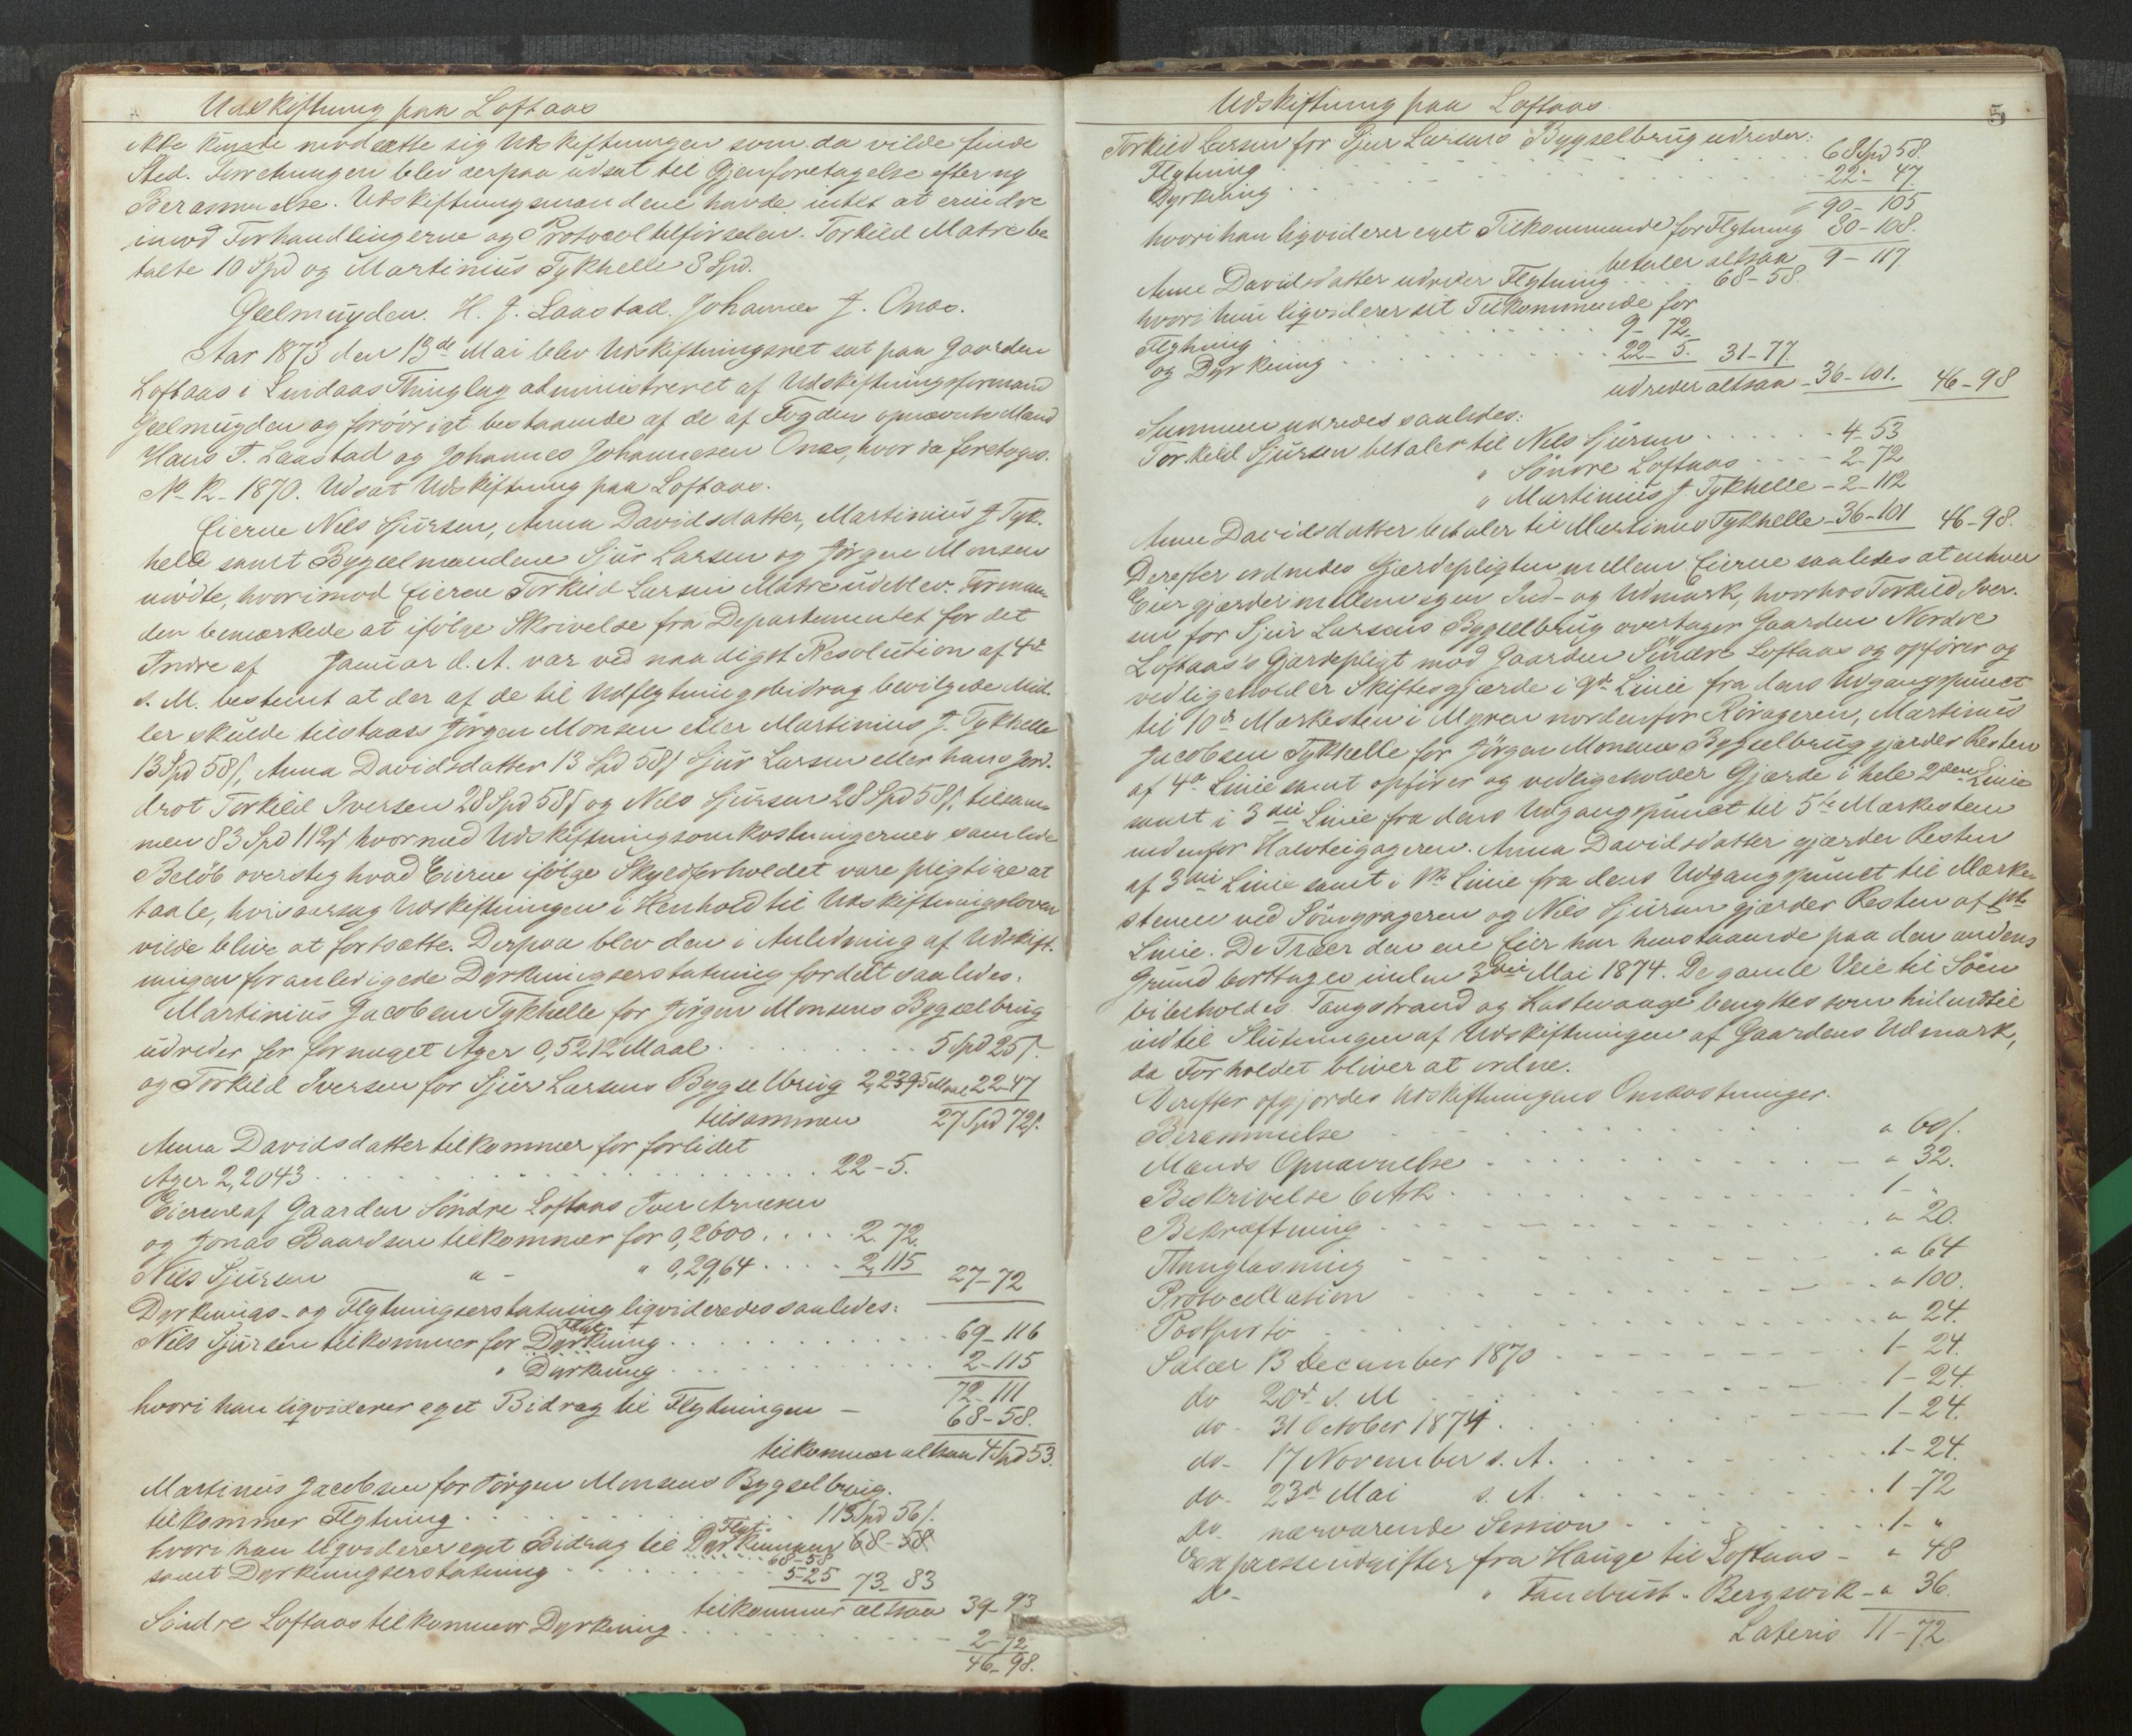 Udskiftning paa Loftaas
ikke kunde modsætte sig Udskiftningen som da vilde finde
Sted. Forretningen blev derpaa udsat til Gjenforetagelse efter ny
Berammelse. Udskiftningsmændene havde intet at erindre
imod Forhandlingerne og Protocoltilførselen. Torkild Matre be
talte 10 Spd og Martinius Tykhelle 8 Spd.
Geelmuyden. H. J. Laastad. Johannes J. Onæs.
Aar 1873 den 13de Mai blev Udskiftningsret sat paa Gaarden
Loftaas i Lindaas Thinglag administreret af Udskiftningsformand
Geelmuyden og forøvrigt bestaaende af de af Fogden opnævnte Mænd
Hans J. Laastad og Johannes Johannesen Onæs, hvor da foretoges.
No 12 - 1870. Udsat Udskiftning paa Loftaas.
Eierne Nils Sjursen, Anna Davidsdatter, Martinius J Tyk-
helle samt Bygselmændene Sjur Larsen og Jørgen Monsen
mødte, hvorimod Eieren Torkild Larsen Matre udeblev. Forman
den bemærkede at ifølge Skrivelse fra Departementet for det
Indre af Januar d. A. var ved naadigst Resolution af 4de
s. M. bestemt at der af de til Udflytningsbidrag bevilgede Mid-
ler skulde tilstaaes Jørgen Monsen eller Martinius J. Tykhelle
13 Spd 58 s, Anna Davidsdatter 13 Spd 58 s Sjur Larsen eller hans Jord-
drot Torkild Iversen 28 Spd 58 s og Nils Sjursen 28 Spd 58 s, tilsam-
men 83 Spd 112 s hvormed Udskiftningsomkostningernes samlede
Beløb oversteg hvad Eierne ifølge Skyldforholdet vare pligtige at
taale, hvisaarsag Udskiftningen i Henhold til Udskiftningsloven
vilde blive at fortsætte. Derpaa blev den i Anledning af Udskift-
ningen foranledigede Dyrkningserstatning fordelt saaledes:
Martinius Jacobsen Tykhelle for Jørgen Monsens Bygselbrug
udreder for formeget Ager 0,5212 Maal . . . 5 Spd 25 s.
og Torkild Iversen for Sjur Larsens Bygselbrug 2,2395 Maal 22-47
tilsammen 27 Spd 72 s.
Anna Davidsdatter tilkommer for forlidet
Ager 2,2043 . . . 22-5.
Eierne af Gaarden Søndre Loftaas Iver Arnesen
og Jonas Baardsen tilkommer for 0,2600 . . . 2. 72.
Nils Sjursen " - " 0,2964 . . . 2,115 27-72
Dyrknings- og Flytningserstatning liqvideredes saaledes:
Nils Sjursen tilkommer for Flyt- Dyrkning . . . 69-116
" Dyrkning . . . 2-115
72-111
hvori han liqviderer eget Bidrag til Flytningen - 68-58.
tilkommer altsaa 4 Spd 53.
Martinius Jacobsen for Jørgen Monsens Bygselbrug.
tilkommer Flytning . . . 113 Spd 56 s.
hvori han liqviderer eget Bidrag til Flyt- Dyrkningen 68-58
68-58
samt Dyrkningserstatning . . . 5-25 73-83
tilkommer altsaa 39-93
Søndre Loftaas tilkommer Dyrkning . . . 2-72
46-98.
Udskiftning paa Loftaas. 5
Torkild Larsen for Sjur Larsens Bygselbrug udreder:
Flytning . . . 68 Spd 58.
Dyrkning . . . 22- 47
90-105
hvori han liqviderer eget Tilkommende for Flytning 80-108.
betaler altsaa 9-117.
Anne Davidsdatter udreder Flytning . . . 68-58.
hvori hun liqviderer sit Tilkommende for
Flytning . . . 9-72.
og Dyrkning . . . 22-5. 31-77.
udreder altsaa - 36-101. 46-98
Summen udredes saaledes:
Torkild Sjursen betaler til Nils Sjursen . . . 4-53
" Søndre Loftaas . . . 2-72
" Martinius J. Tykhelle - 2-112
Anne Davidsdatter betaler til Martinus Tykhelle - 36-101 46-98.
Derefter ordnedes Gjærdepligten mellem Eierne saaledes at enhver
Eier gjærder mellem egen Ind- og Udmark, hvorhos Torkild Iver-
sen for Sjur Larsens Bygselbrug overtager Gaarden Nordre
Loftaas's Gjærdepligt mod Gaarden Søndre Loftaas og opfører og
vedligeholder Skiftesgjærde i 9de Linie fra dens Udgangspunct
til 10de Mærkesten i Myren nordenfor Rørageren, Martinus
Jacobsen Tykhelle for Jørgen Monsens Bygselbrug gjærder Resten
af 4de Linie samt opfører og vedligeholder Gjærde i hele 2den Linie
samt i 3die Linie fra dens Udgangspunct til 5te Mærkesten
nedenfor Halvteigageren. Anna Davidsdatter gjærder Resten
af 3die Linie samt i 1ste Linie fra dens Udgangspunct til Mærke-
stenen ved og Nils Sjursen gjærder Resten af 1ste
Linie. De Træer den ene Eier har henstaaende paa den andens
Grund borttages inden 3die Mai 1874. De gamle Veie til Søen
bibeholdes. Tangstrand og Lastevaage benyttes som hidindtil
indtil Slutningen af Udskiftningen af Gaardens Udmark,
da Forholdet bliver at ordne.
Derefter opgjordes Udskiftningens Omkostninger.
Berammelse . . . " 60 s.
Mænds Opnævnelse . . . " 32.
Beskrivelse 6 Ark . . . 1- "
Bekræftning . . . " 20.
Thinglæsning . . . " 64
Protocollation . . . " 100.
Postporto . . . " 24.
Salær 13 December 1870 . . . 1- 24.
do 20de s. M . . . 1-24
do - 31 October 1871 . . . 1-24.
do - 17 November s. A. . . . 1-24.
do - 23de Mai s. A. . . . 1-72
Do - nærværende Session . . . 1- "
Expresseudgifter fra Hauge til Loftaas - " 48
Do - " - Bergsvik - " 36.
Lateris 11-72